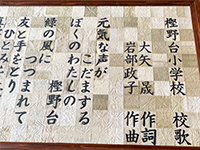 樫野台小学校 校歌
大矢 晟 作詞
岩部政子 作曲
元気な声が
こだまする
ぼくのわたしの
樫野台
緑の風に
つつまれて
友と手をとり